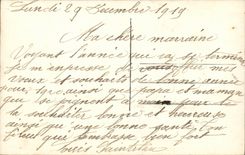 Lundi 29 Décembre 1919
Ma chère marraine
Voyant l'année qui va se terminer
je m'empresse de vous
vœux et souhaits de bonne année
pour toi ainsi que papa et maman
que se joignent à moi pour te
la souhaiter bonne et heureuse
ainsi qu'une bonne santé,
filleul qui t'embrasse bien fort
Louis